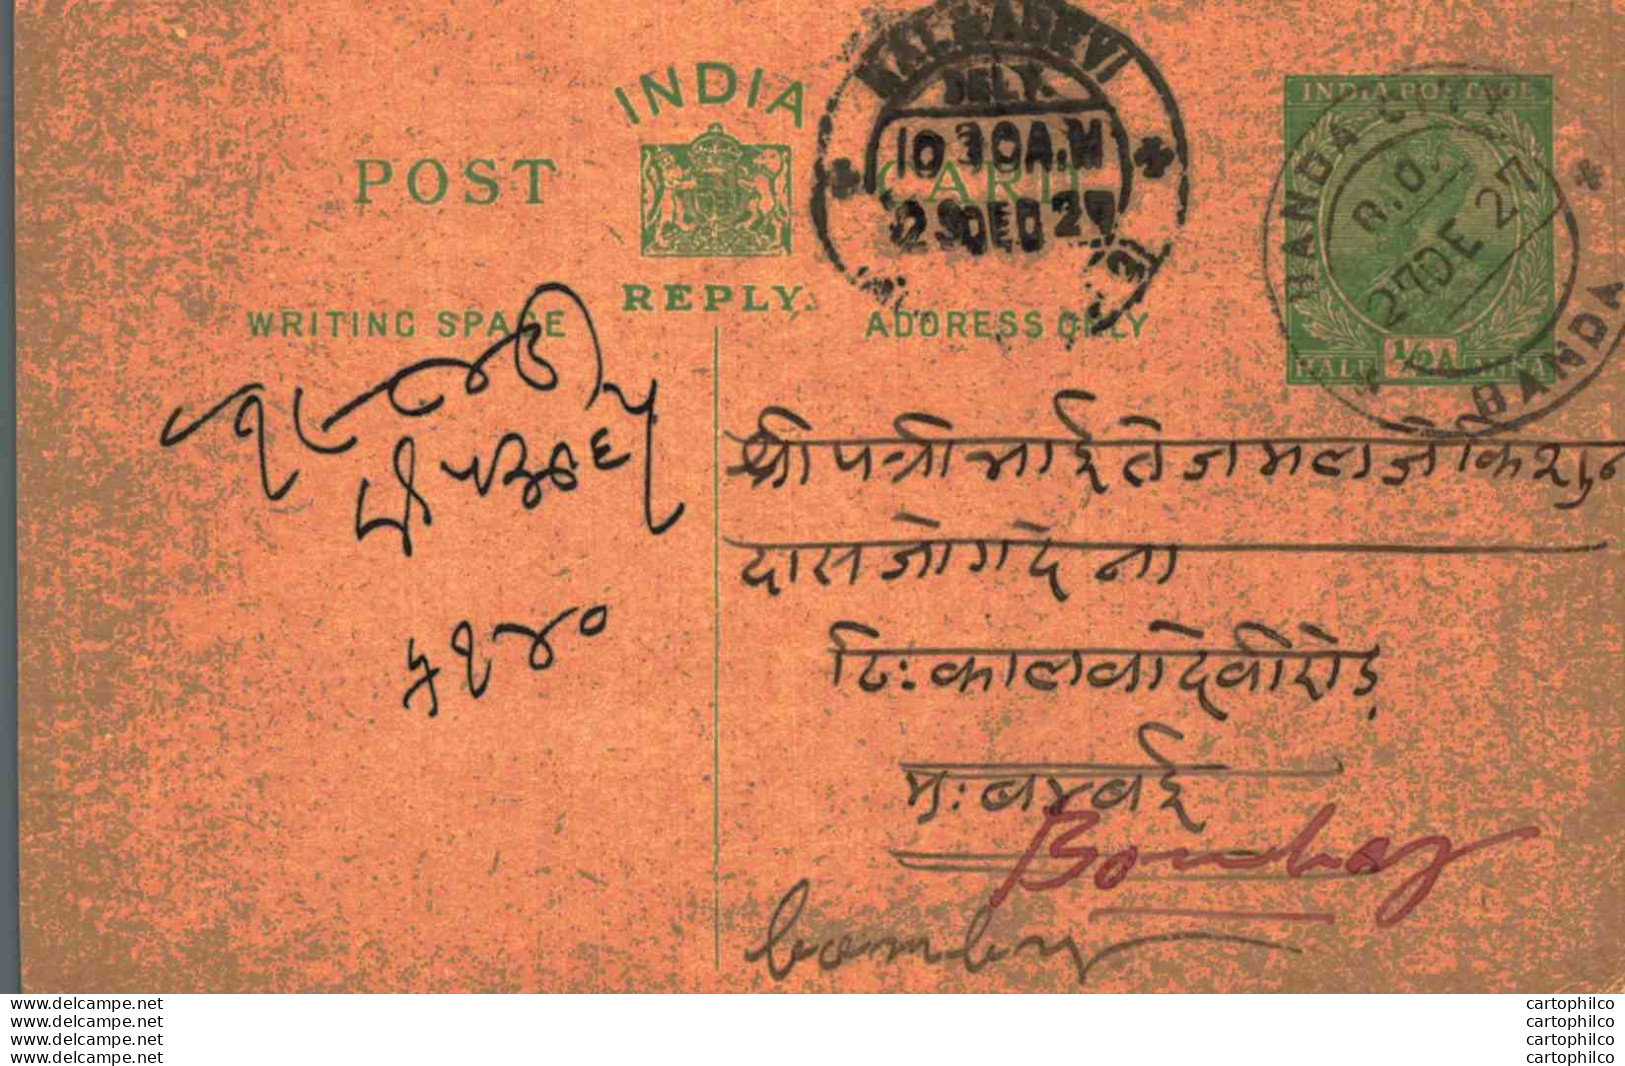 INDIA
POST CARD
REPLY.
WRITING SPACE
ADDRESS ONLY
KALBADEVI
DELY.
10 30 A.M
29 DEC 27
INDIA POSTAGE
HALF ½A ANNA
BANDA CITY
R.O.
27 DE 27
BANDA
श्री पत्री भाई तेजमल जी
दास जोग देना
ठि: कालवादेवी रोड़
मु: बम्बई
Bombay
bombay
५१४०
www.delcampe.net
www.delcampe.net
www.delcampe.net
www.delcampe.net
cartophilco
cartophilco
cartophilco
cartophilco